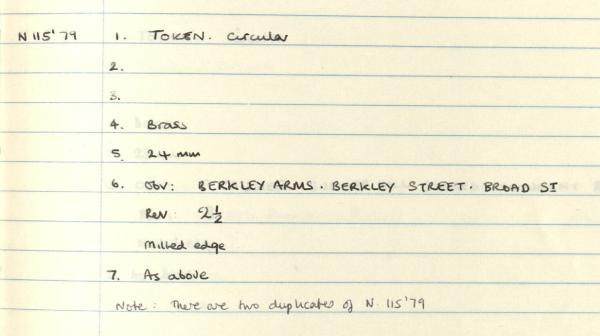 N 115'79 1. TOKEN. Circular
2.
3.
4. Brass
5. 24 mm
6. Obv: BERKLEY ARMS. BERKLEY STREET. BROAD ST
Rev: 2½
Milled edge
7. As above
Note: There are two duplicates of N. 115'79